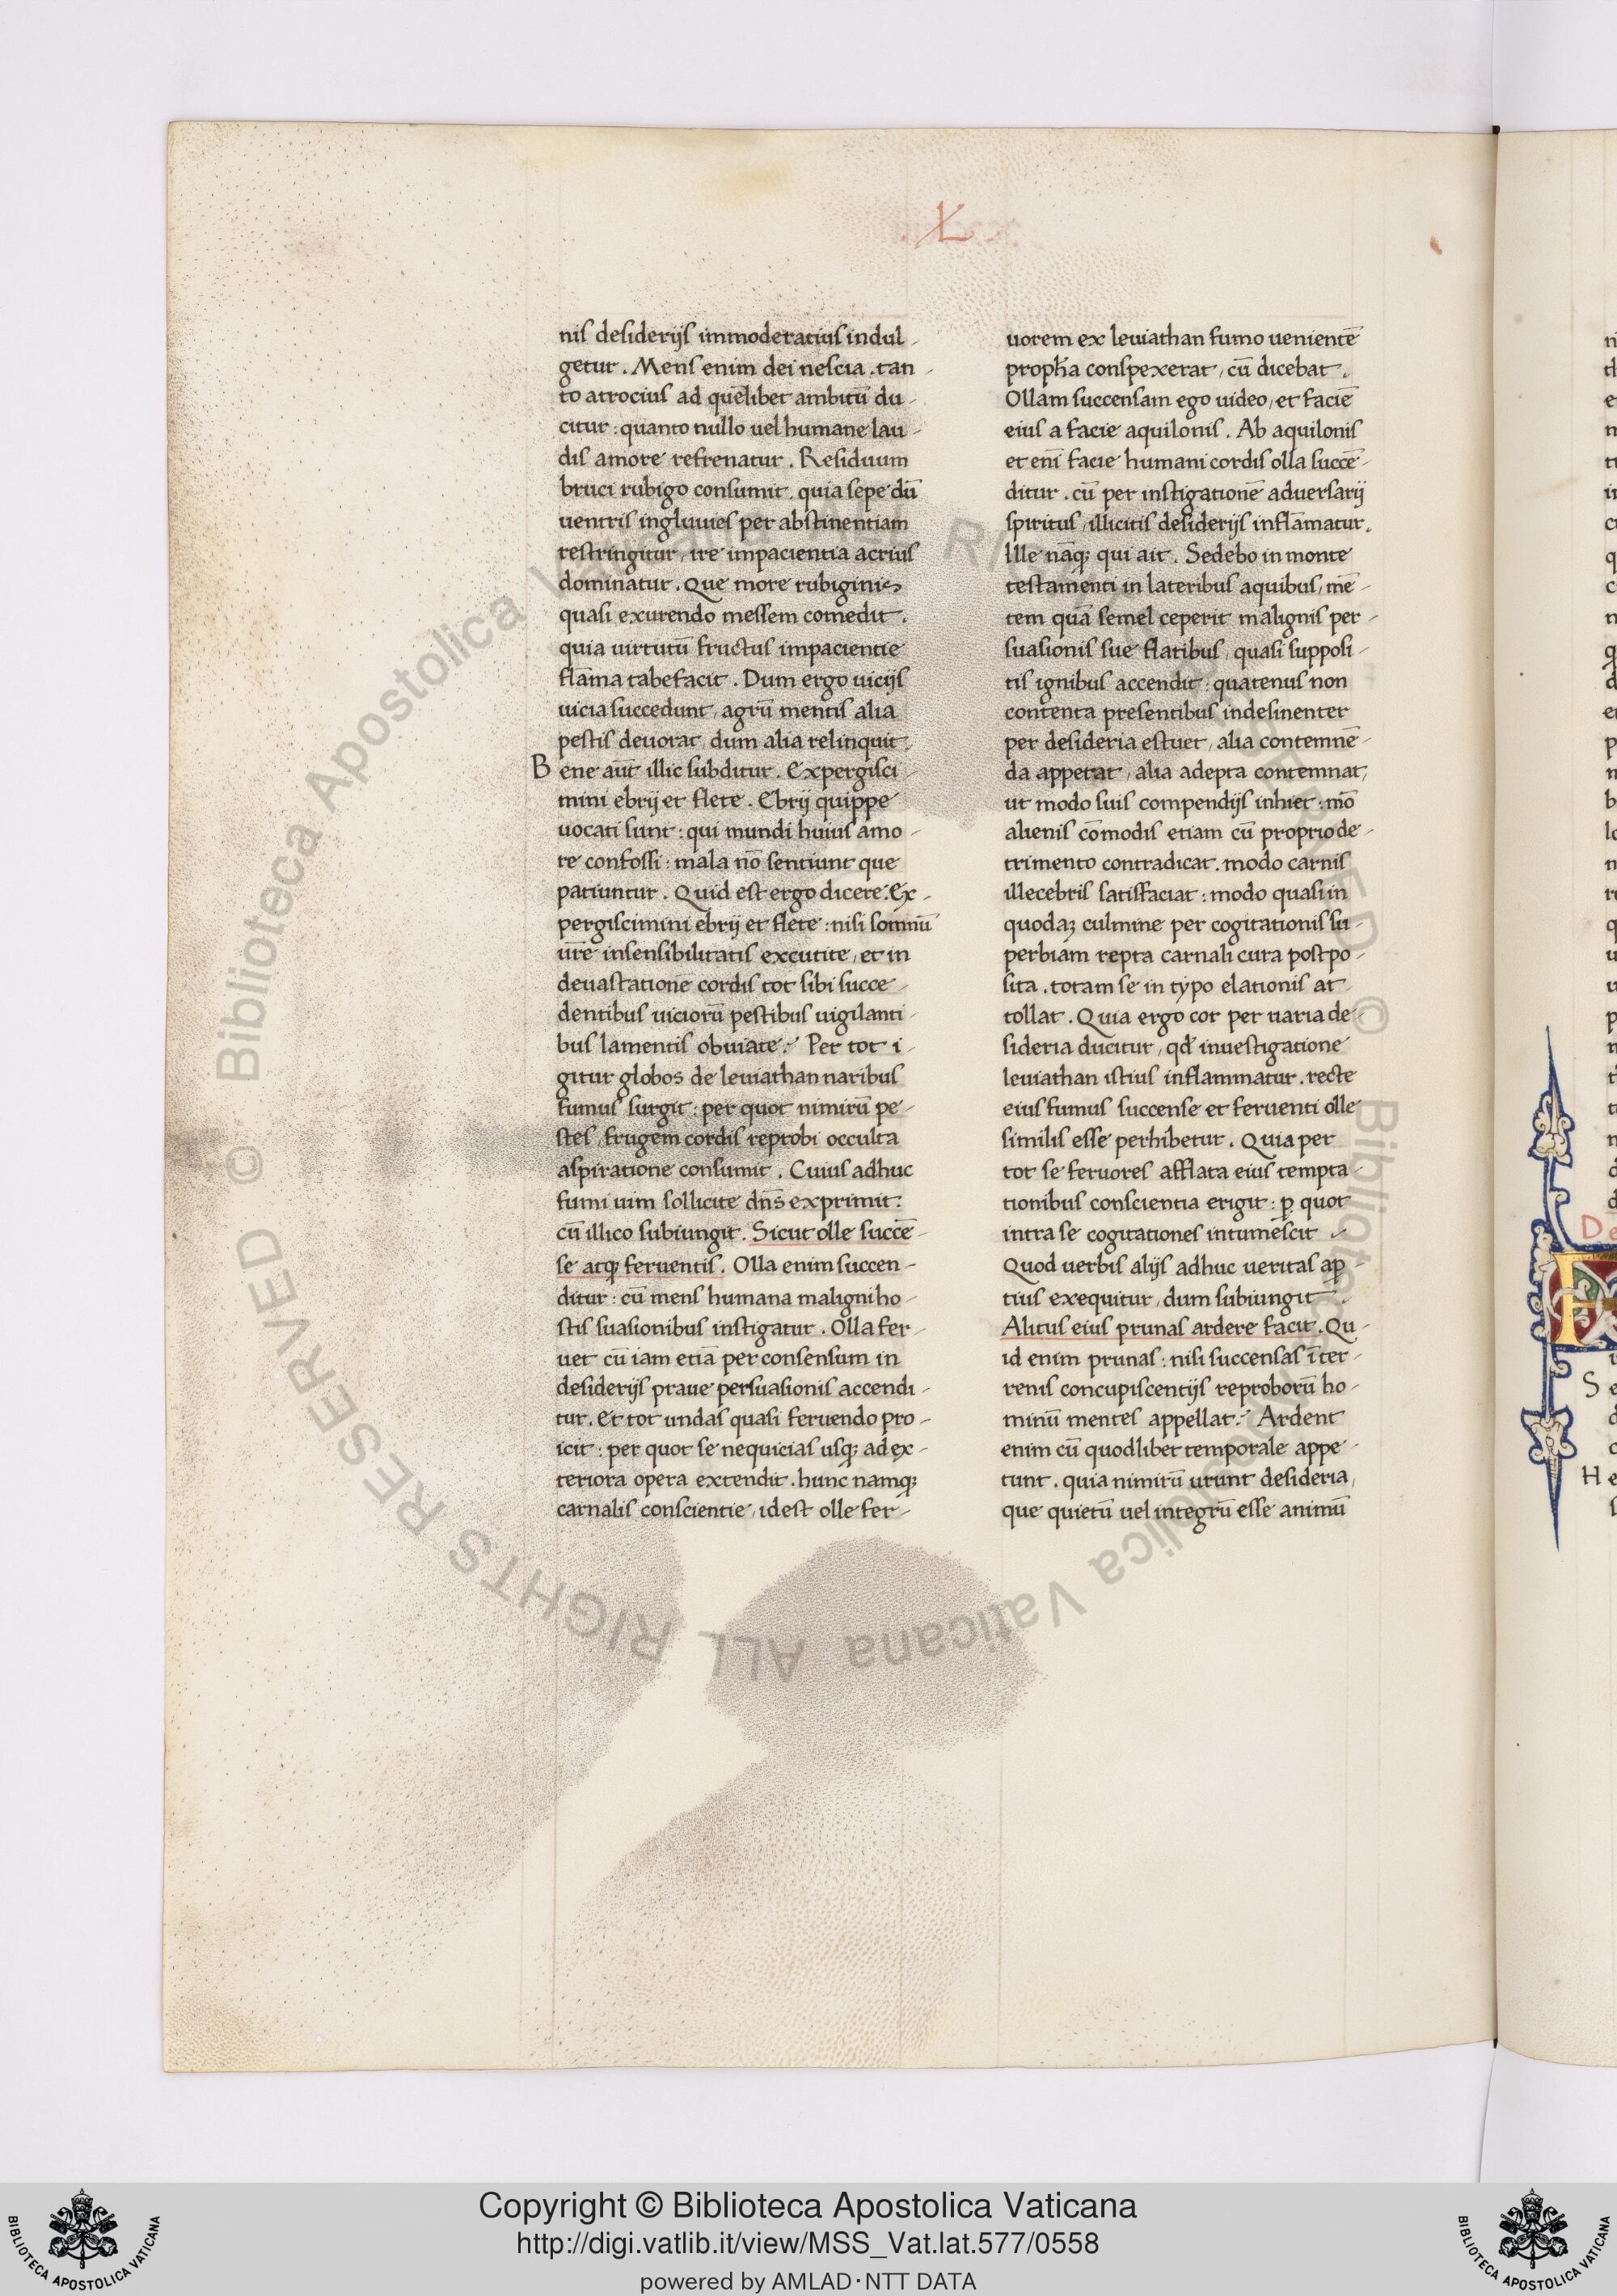 XL
nis desiderijs immoderatius indul-
getur. Mens enim dei nescia. tan-
to atrocius ad quēlibet ambitū du-
citur: quanto nullo uel humane lau-
dis amore refrenatur. Residuum
bruci rubigo consumit. quia sepe dū
uentris ingluuies per abstinentiam
restringitur, ire impacientia acrius
dominatur. Que more rubiginis
quasi exurendo messem comedit.
quia uirtutū fructus impacientie
flāma tabefacit. Dum ergo uicijs
uicia succedunt, agrū mentis alia
pestis deuorat, dum alia relinquit.
Bene aūt illic subditur. Expergisci-
mini ebrij et flete. Ebrij quippe
uocati sunt: qui mundi huius amo-
re confossi: mala nō sentiunt que
patiuntur. Quid est ergo dicere. Ex-
pergiscimini ebrij et flete: nisi somnū
ur̄e insensibilitatis excutite, et in
deuastatione cordis tot sibi succe-
dentibus uiciorū pestibus uigilanti-
bus lamentis obuiate. Per tot i-
gitur globos de leuiathan naribus
fumus surgit: per quot nimirū pe-
stes, frugem cordis reprobi occulta
aspiratione consumit. Cuius adhuc
fumi uim sollicite dn̄s exprimit:
cū illico subiungit. Sicut olle succē-
se atqꝫ feruentis. Olla enim succen-
ditur: cū mens humana maligni ho-
stis suasionibus instigatur. Olla fer-
uet cū iam etiā per consensum in
desiderijs praue persuasionis accendi-
tur. Et tot undas quasi feruendo pro-
icit: per quot se nequicias usqꝫ ad ex-
teriora opera extendit. hunc namqꝫ
carnalis conscientie, idest olle fer-
uorem ex leuiathan fumo uenientē
proph̄a conspexerat, cū dicebat.
Ollam succensam ego uideo, et faciē
eius a facie aquilonis. Ab aquilonis
et enī facie humani cordis olla succē-
ditur. cū per instigationē aduersarij
spiritus, illicitis desiderijs inflāmatur.
Ille nāqꝫ qui ait. Sedebo in monte
testamenti in lateribus aquibus, mē-
tem quā semel ceperit malignis per-
suasionis sue flatibus, quasi supposi-
tis ignibus accendit: quatenus non
contenta presentibus indesinenter
per desideria estuet, alia contemnē-
da appetat, alia adepta contemnat,
ut modo suis compendijs inhiet: mō
alienis cōmodis etiam cū proprio de-
trimento contradicat. modo carnis
illecebris satisfaciat: modo quasi in
quodaꝫ culmine per cogitationis su-
perbiam repta carnali cura postpo-
sita. totam se in typo elationis at-
tollat. Quia ergo cor per uaria de-
sideria ducitur, qd̄ inuestigatione
leuiathan istius inflammatur. recte
eius fumus succense et feruenti olle
similis esse perhibetur. Quia per
tot se feruores afflata eius tempta-
tionibus conscientia erigit: ꝑ quot
intra se cogitationes intumescit.
Quod uerbis alijs adhuc ueritas ap̄-
tius exequitur, dum subiungit.
Alitus eius prunas ardere facit. Qu-
id enim prunas: nisi succensas īter-
renis concupiscentijs reproborū ho-
minū mentes appellat. Ardent
enim cū quodlibet temporale appe-
tunt. quia nimirū urunt desideria,
que quietū uel integrū esse animū
© Biblioteca Apostolica Vaticana ALL RIGHTS RESERVED
Copyright © Biblioteca Apostolica Vaticana
http://digi.vatlib.it/view/MSS_Vat.lat.577/0558
powered by AMLAD·NTT DATA
BIBLIOTECA APOSTOLICA VATICANA
BIBLIOTECA APOSTOLICA VATICANA